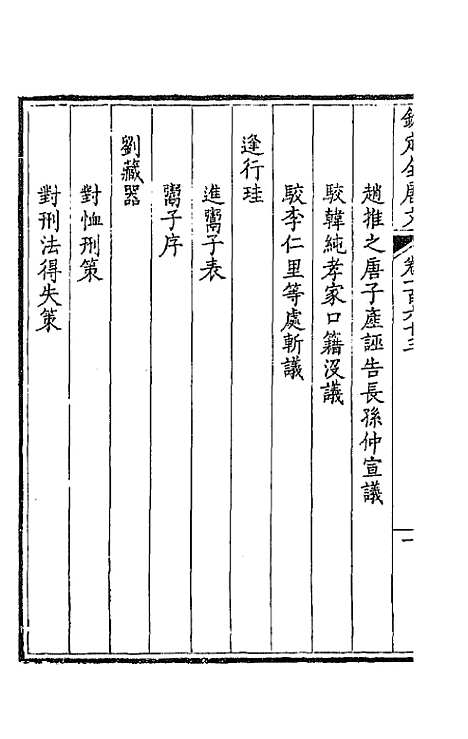 欽定全唐文 卷一百六十二 一
趙推之唐子產誣告長孫仲宣議
駮韓純孝家口籍沒議
駮李仁里等處斬議
逄行珪
進鬻子表
鬻子序
劉藏器
對恤刑策
對刑法得失策